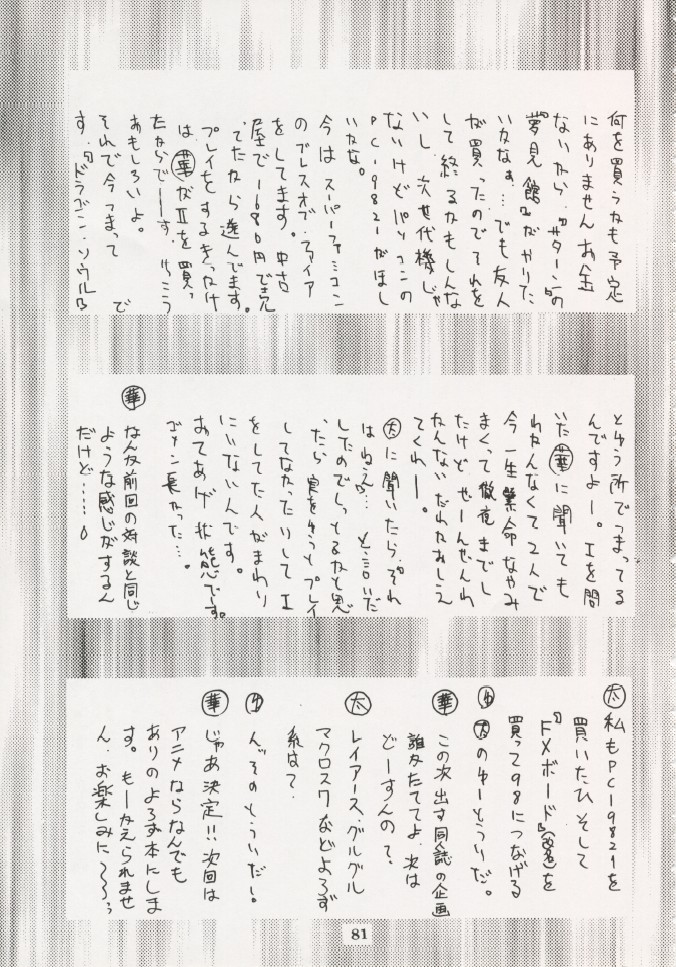 何を買うかも予定
にありません お金
ないから、『サターン』の
『夢見館』がやりた
いかなぁ…でも友人
が買ったのでそれを
して終るかもしんな
いし、次世代機じゃ
ないけどパソコンの
PC-9821がほし
いかな。
今はスーパーファミコン
のブレスオブ・ファイア
をしてます。中古
屋で1680円で売
ってたから遊んでます。
プレイをするきっかけ
は(華)がⅡを買っ
たからでーす。けっこう
おもしろいよ。
それで今つまって で
す。『ドラゴン・ソウル』
とゆう所でつまってる
んですよー。Ⅰを聞
いた(華)に聞いても
わかんなくて2人で
今一生懸命なやみ
まくって徹夜までし
たけど、ぜーんぜんわ
かんないだれかおしえ
てくれー。
(太)に聞いたら「それ
はねえ?…と、言いだ
したのでしってるかなと思
ったら実をゆうとプレイ
してなかったりしてⅠ
をしてた人がまわり
にいないんです。
おてあげ状態でーす。
ゴメン長かった…。
(華) なんか前回の対談と同じ
ような感じがするん
だけど……。
(太) 私もPC-9821を
買いたひ そして
『FXボード』(改名)を
買って98につなげる
(ゆ) (太)のゆーとうりだ。
(華) この次出す同人誌の企画
誰かたててよ、次は
どーすんの?
(太) レイアース、グルグル
マクロス7などよろず
系は?
(ゆ) んーそのとういだ!。
(華) じゃあ決定!!次回は
アニメならなんでも
ありのよろず本にしま
す。もーかえられませ
ん。お楽しみに〜〜
81